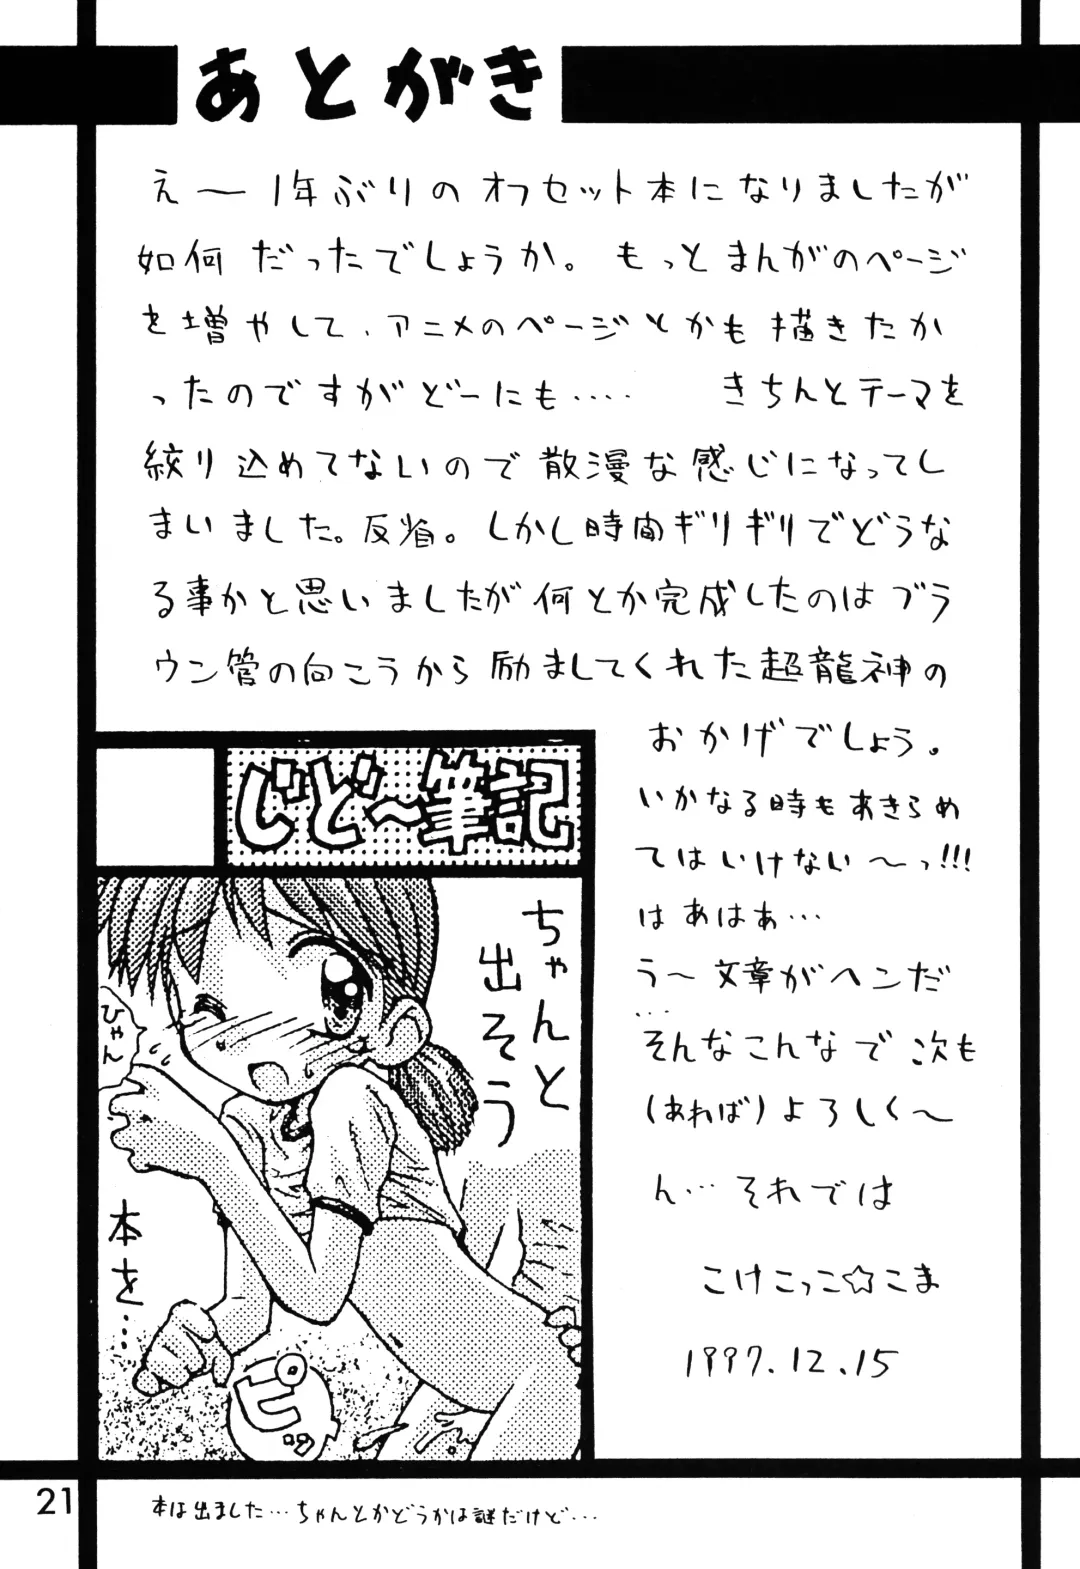 あとがき
え〜1年ぶりのオフセット本になりましたが
如何だったでしょうか。もっとまんがのページ
を増やして、アニメのページとかも描きたか
ったのですがどーにも…‥ きちんとテーマを
絞り込めてないので散漫な感じになってし
まいました。反省。しかし時間ギリギリでどうな
る事かと思いましたが何とか完成したのはブラ
ウン管の向こうから励ましてくれた超龍神の
おかげでしょう。
いかなる時もあきらめ
てはいけない〜っ!!!
はあはあ…
う〜文章がヘンだ
…
そんなこんなで次も
(あれば)よろしく〜
ん…それでは
こけこっこ☆こま
1997.12.15
じど〜筆記
ちゃんと
出そう
本を…
ひゃん
ピッ
21
本は出ました…ちゃんとかどうかは謎だけど…